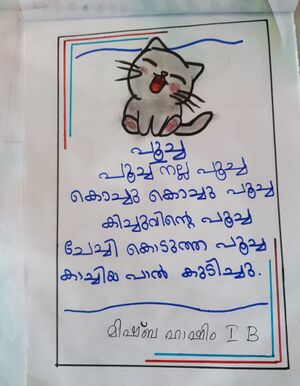 പൂച്ച
പൂച്ച നല്ല പൂച്ച
കൊച്ചു കൊച്ചു പൂച്ച
കിച്ചുവിന്റെ പൂച്ച
ചേച്ചി കൊടുത്ത പൂച്ച
കാച്ചിയ പാൽ കുടിച്ചു.
മിഷ്ബ ഹാഷിം I B